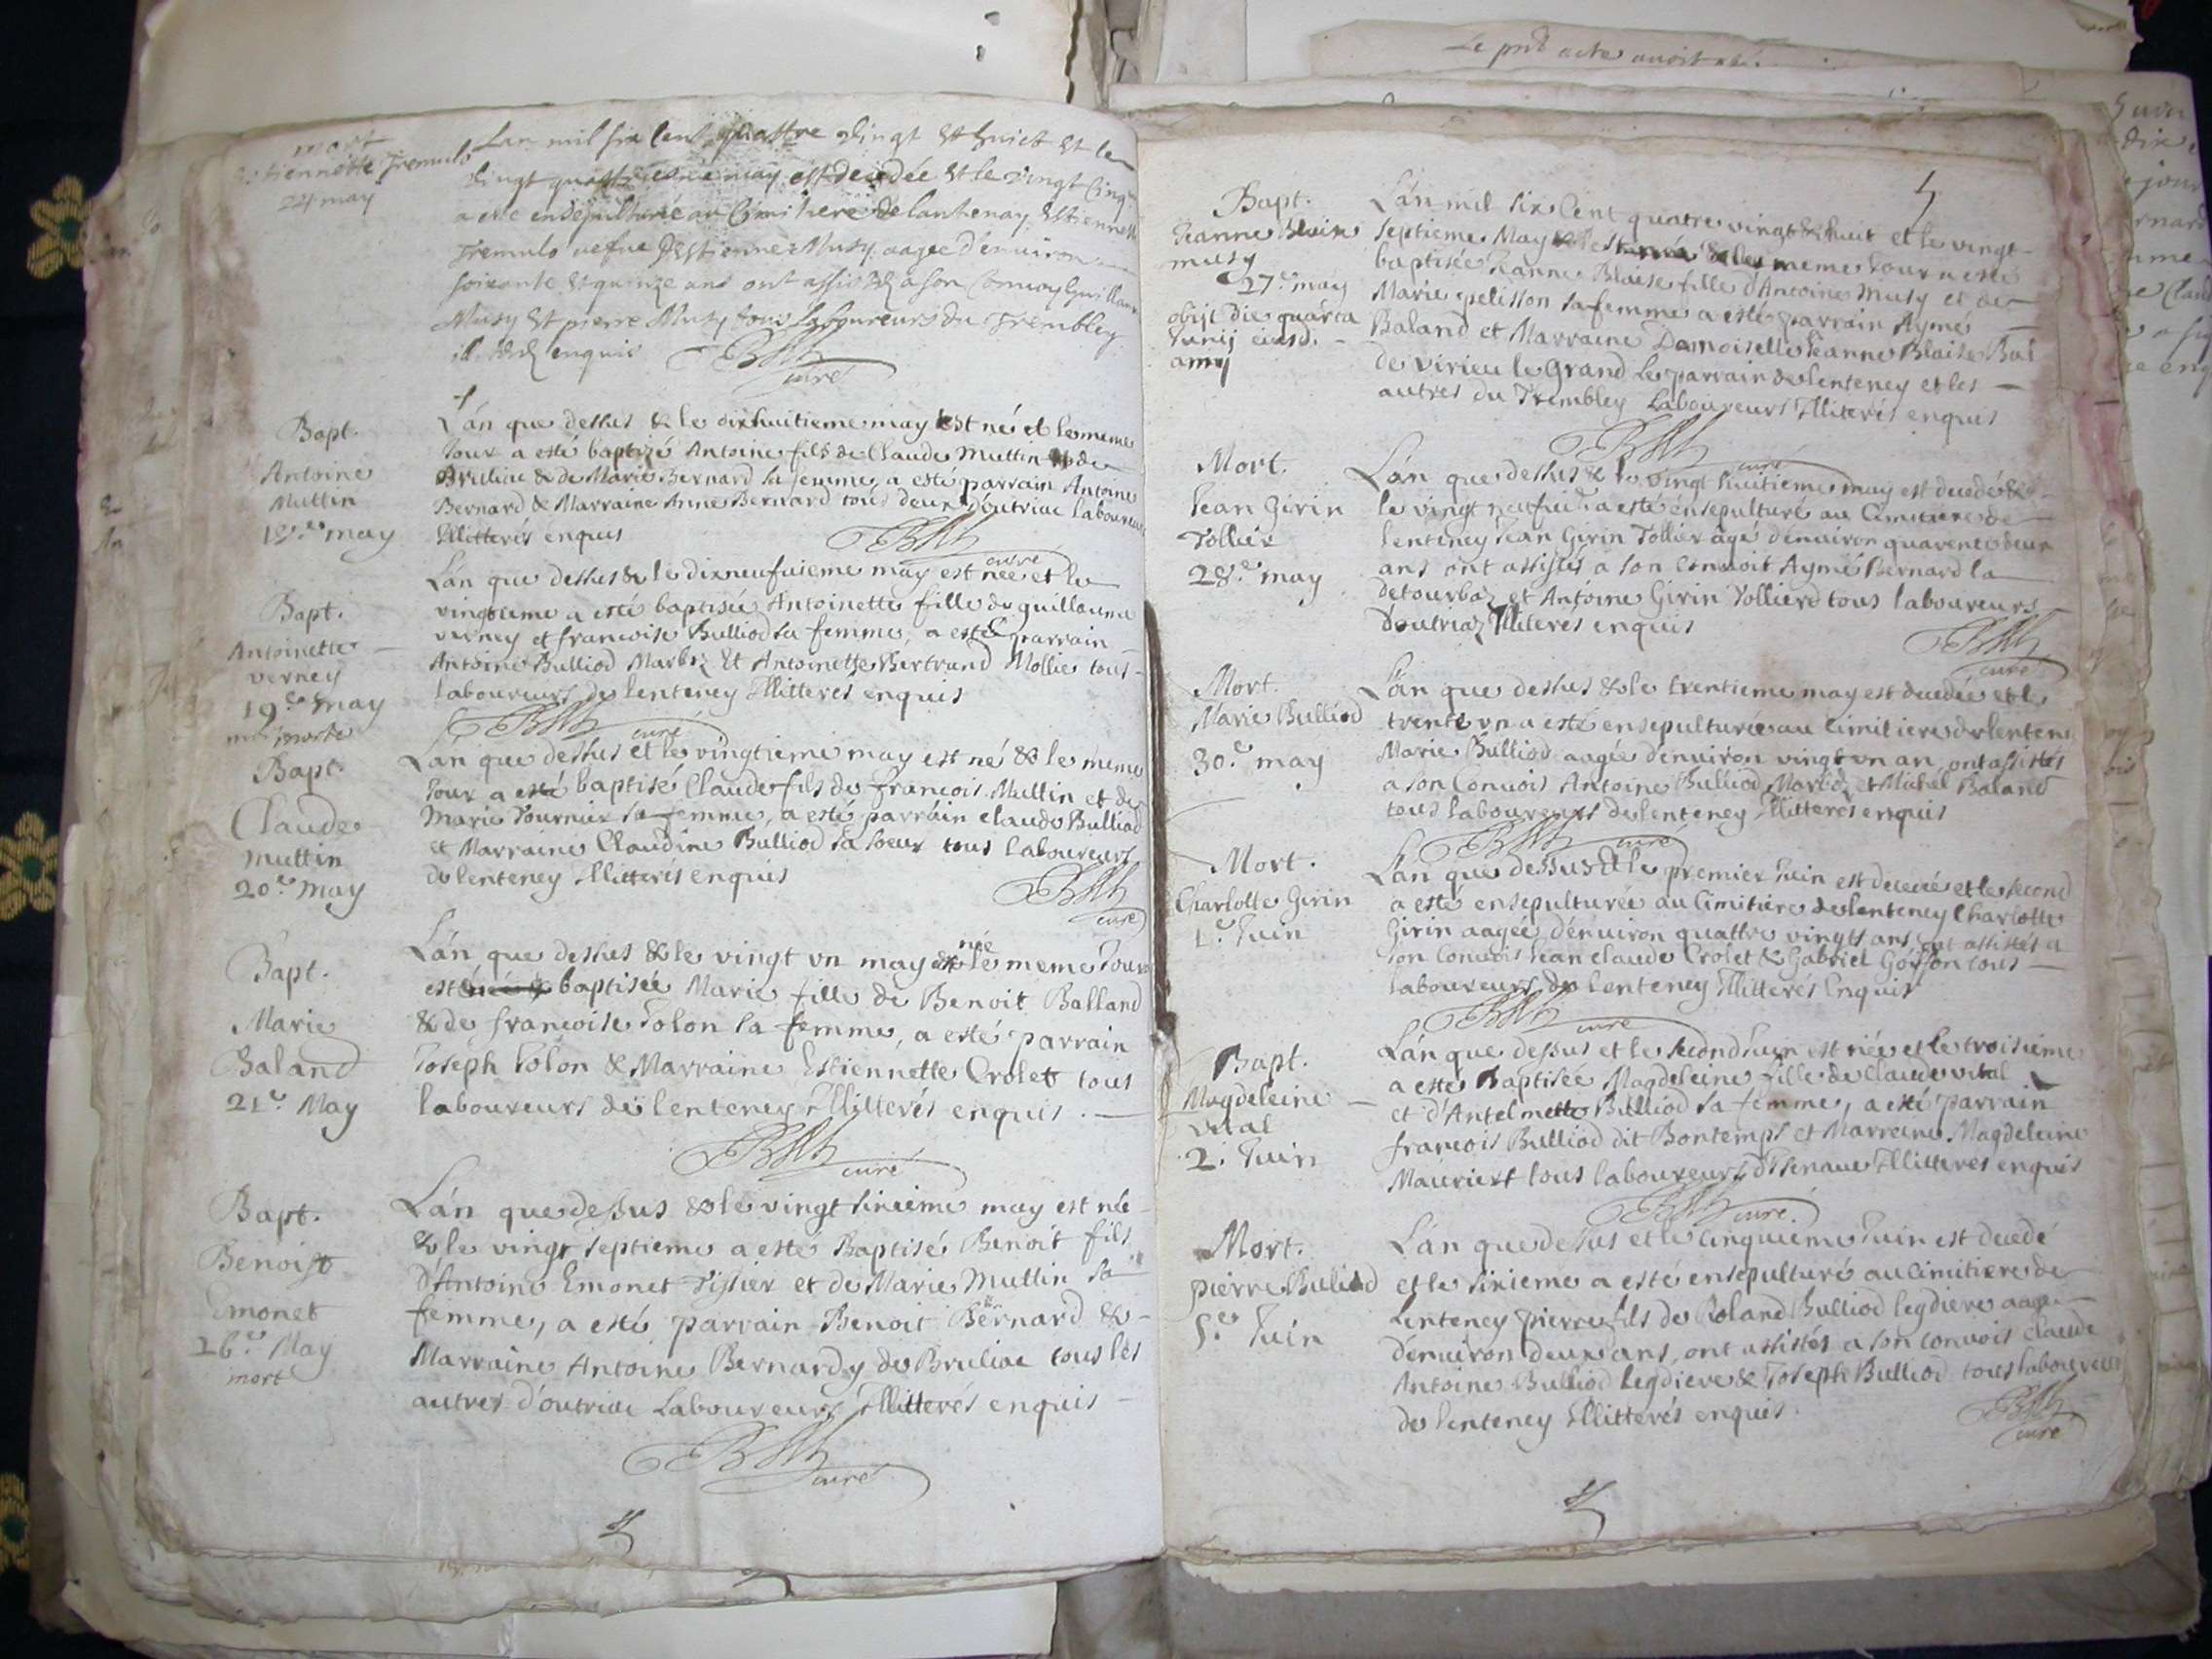 mort
Estiennette Tremulo
24 may
Lan mil six cent quattre vingt & huict & le
vingt quattrieme may est decedée & le vingt cinq
a esté ensepulturé au Cimitiere de lantenay Estiennette
Tremulo vefue d'Estienne Musy aagee d'enuiron
soixante & quinze ans ont assisté a son Conuoy Guillaume
Musy & pierre Musy tous laboureurs du Trembley
ill. enquis
curé
Bapt.
Antoine
Muttin
18.e may
Lán que dessus & le dixhuitieme may est né et le meme
Jour a esté baptizé Antoine fils de Claude Muttin de
Bruliae & de Marie Bernard sa femme, a esté parrain Antoine
Bernard & Marraine Anne Bernard tous deux d'outriae laboureurs
Illitterés enquis
curé
Bapt.
Antoinette
verney
19.e may
morte
Lán que dessus & le dixneufuieme may est née et le
vingtieme a esté baptisée Antoinette fille de guillaume
verney et francoise Bulliod sa femme, a esté parrain
Antoine Bulliod Marboz Et Antoinette Bertrand Mollie tous
laboureurs de lenteney Illitterés enquis
curé
Bapt.
Claude
Muttin
20.e may
Lán que dessus et le vingtieme may est né & le meme
Jour a esté baptisé Claude fils de francois Muttin et de
Marie Fournier sa femme, a esté parráin claude Bulliod
et Marraine Claudine Bulliod sa soeur tous laboureurs
de lenteney Illitterés enquis
curé
Bapt.
Marie
Baland
21.e May
Lán que dessus & le vingt vn may est née le meme Jour
est née & baptisée Marie fille de Benoit Balland
& de francoise Jolon sa femme, a esté parrain
Joseph Jolon & Marraine Estiennette Crolet tous
laboureurs de lenteney Illitterés enquis.
curé
Bapt.
Benoist
Emonet
26.e May
mort
Lán que dessus & le vingt sixieme may est née
& le vingt septieme a esté Baptisé Benoit fils
d'Antoine Emonet Tissier et de Marie Muttin sa
femme, a esté parrain Benoit Bernard &
Marraine Antoine Bernardy de Bruliae tous les
autres d'outriae Laboureurs Illitterés enquis
curé
Le pnt acte auoit esté
Bapt.
Jeanne Blaise
musy
27.e may
obijt die quárta
Junij eiusd.
anni
Lán mil six Cent quatre vingt & huit et le vingt
septieme May est née & le meme Jour a esté
baptisée Jeanne Blaise fille d'Antoine Musy et de
Marie pelisson sa femme a esté parrain Aymé
Baland et Marraine Damoiselle Jeanne Blaise Bal
de virieu le Grand Le parrain de lenteney et les
autres du Trembley Laboureurs Illiterés enquis
curé
Mort.
Jean Girin
Tollier
28.e may
Lán que dessus & le vingt huitieme may est decedé &
le vingt neufuie. a esté ensepulturé au Cimitiere de
lenteney Jean Girin Tollier âgé d'enuiron quarente deux
ans ont assistés a son Conuoit Aymé Bernard la
detourbaz et Antoine Girin Tolliere tous laboureurs
d'outriaz Illiterés enquis
curé
Mort.
Marie Bulliod
30.e may
Lán que dessus & le trentieme may est decedée et le
trente vn a esté ensepulturée au Cimitiere de lenteney
Marie Bulliod aagée d'enuiron vingt vn an, ont assistés
a son Conuois Antoine Bulliod Marboz et Michel Baland
tous laboureurs de lenteney Illitterés enquis
curé
Mort.
Charlotte Girin
1.e Juin
Lán que dessus & le premier Juin est decedée et le second
a esté ensepulturée au Cimitiere de lenteney Charlotte
Girin aagée d'enuiron quattre vingts ans, ont assistés a
son Conuois Jean claude Crolet & Gabriel Goiffon tous
laboureurs de lenteney Illitterés Enquis
curé
Bapt.
Magdeleine
vital
2. Juin
Lán que dessus et le second Juin est née et le troisieme
a esté Baptisée Magdeleine fille de Claude vital
et d'Antelmette Bulliod sa femme, a esté parrain
francois Bulliod dit Bontemps et Marreine Magdeleine
Mauriert tous laboureurs d'Isenaue Illitterés enquis
curé.
Mort.
pierre Buliod
5.e Juin
Lán que dessus et le cinquieme Juin est decedé
et le sixieme a esté ensepulturé au Cimitiere de
Lenteney pierre fils de Roland Bulliod legdiere aagé
d'enuiron deux ans, ont assistés a son conuois claude
Antoine Bulliod legdiere & Joseph Bulliod tous laboureurs
de lenteney Illitterés enquis.
curé